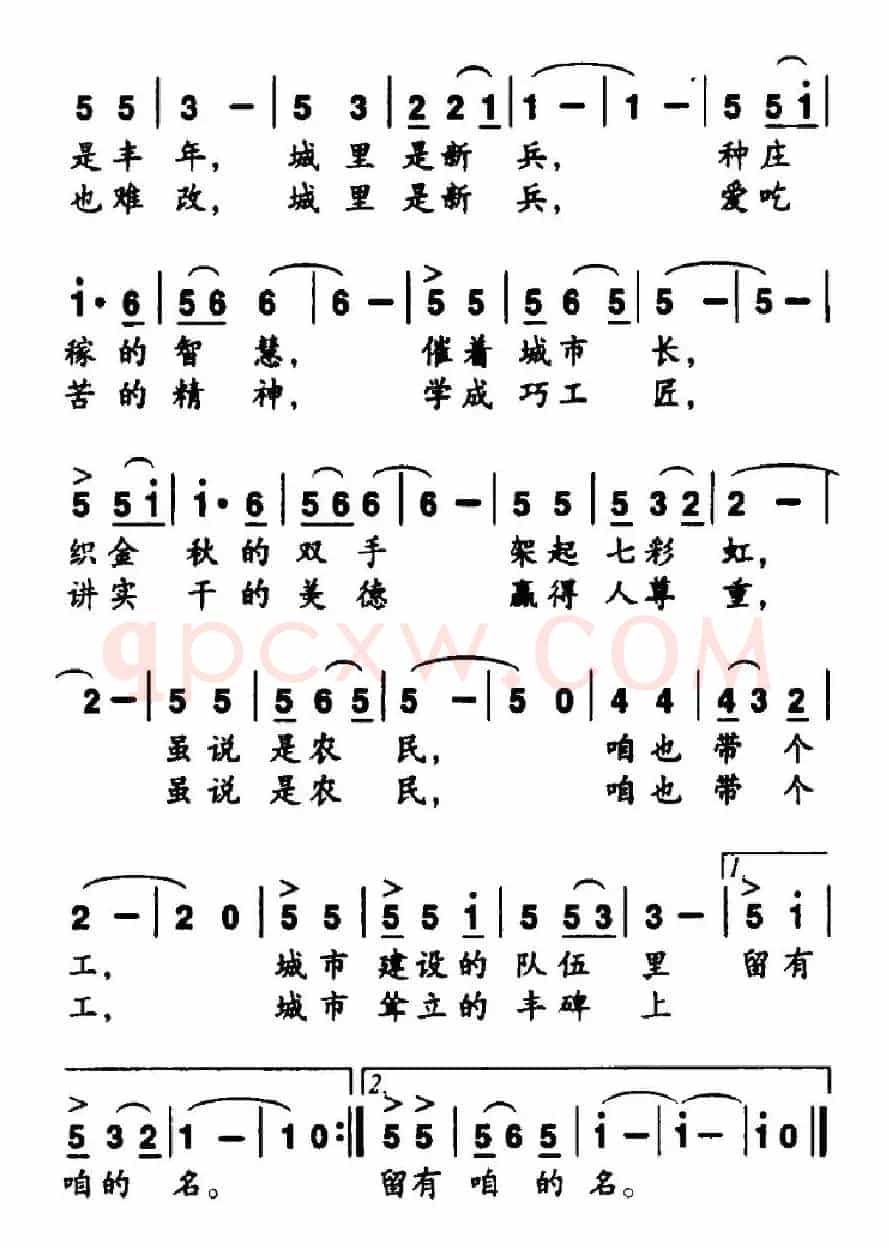 5 5 | 3 − | 5 3 | 2 2 1 | 1 − | 1 − | 5 5 i |
是丰 年， 城里是新 兵， 种庄
也难 改， 城里是新 兵， 爱吃
i· 6 | 5 6 6 | 6 − | 5 5 | 5 6 5 | 5 − | 5 − |
稼的智 慧， 催着城市 长，
苦的精 神， 学成巧工 匠，
5 5 i | i· 6 | 5 6 6 | 6 − | 5 5 | 5 3 2 | 2 − |
织金 秋的双手 架起七彩 虹，
讲实 干的美德 赢得人尊 重，
qpcxw.COM
2 − | 5 5 | 5 6 5 | 5 − | 5 0 | 4 4 | 4 3 2 |
虽说是农 民， 咱也带个
虽说是农 民， 咱也带个
1.
2 − | 2 0 | 5 5 | 5 5 i | 5 5 3 | 3 − | 5 i
工， 城市建设的队伍里 留有
工， 城市耸立的丰碑上
2.
5 3 2 | 1 − | 1 0 :‖ 5 5 | 5 6 5 | i − | i − | i 0 ‖
咱的 名。 留有咱的名。